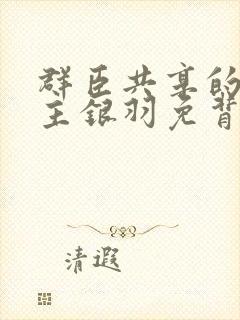 群臣共享的
主银羽免背
清遐